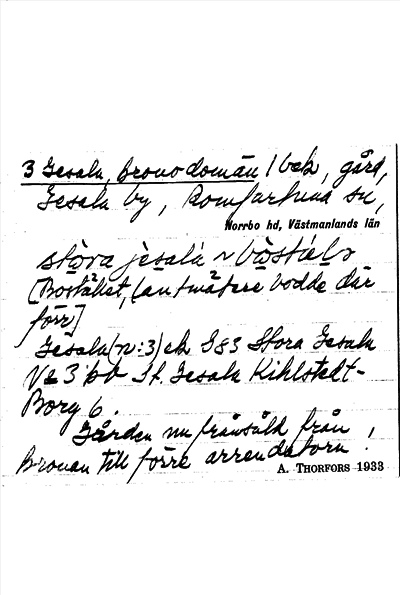 3 Gesala, kronodomän 1 bek, gård,
Gesala by, Romfartuna sn,
Norrbo hd, Västmanlands län
stòra jèsala ~ bòstäl
[Bostället, lantmätare bodde där
förr]
Gesala (n:3) ek 983 Stora Gesala
3 St. Gesala Kihlstedt-
Borg 6.
Gården nu frånsåld från
kronan till förre arrendatorn!
A. THORFORS 1933